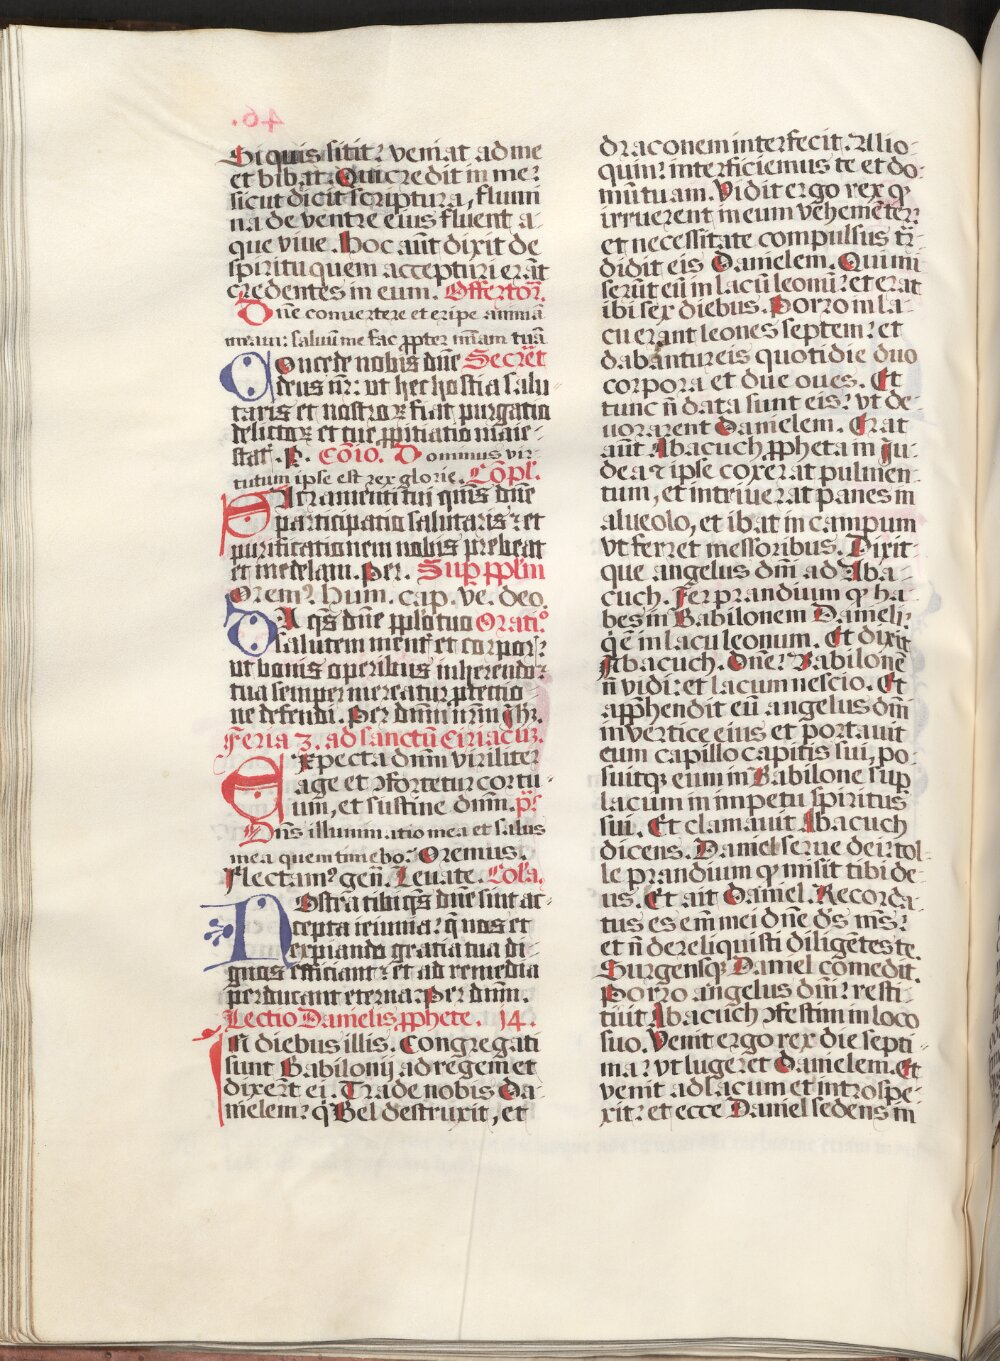 Si quis sitit: veniat ad me
et bibat. Qui credit in me:
sicut dicit scriptura, flumi
na de ventre eius fluent a-
que viue. Hoc aūt dixit de
spiritu quem accepturi erāt
credentes in eum. Offertoꝝ.
Dn̄e conuertere et eripe animā
meam: saluū me fac ꝓpter mīam tuā
Concede nobis dn̄e Secret
deus nr̄: ut hec hostia salu-
taris et nostroꝝ fiat purgatio
delictoꝝ et tue ꝓpitiatio maie-
stat. P. Cōio. Dominus vir-
tutum ipse est rex glorie. Cōpl.
Sacramenti tui quis dn̄e
participatio salutaris: et
purificationem nobis prebeat
et medelam. Per. Sup ppl̄m
Orem᷒. Hum. cap. ve. deo.
Da qs̄ dn̄e pplo tuo Oratio
salutem ment' et corpor':
ut bonis operibus inherendo:
tua semper mereatur ꝓtectio-
ne defendi. Per dn̄m nr̄m ih̄.
Feria 3. ad sanctū Ciriacuz.
Expecta dn̄m viriliter
age et ꝯfortetur cor tu-
um, et sustine dn̄m. ps̄
Dn̄s illuminatio mea et salus
mea quem timebo. Oremus.
Flectam᷒ gen̄. Leuate. Colla.
Nostra tibi qs̄ dn̄e sint ac-
cepta ieiunia: q̄ nos et
expiando gratia tua di-
gnos efficiant: et ad remedia
perducant eterna. Per dn̄m.
Lectio Danielis ꝓphete. 14.
In diebus illis. Congregati
sunt Babilonij ad regem et
dixer̄t ei. Trade nobis Da-
nielem: q̄ Bel destruxit, et
draconem interfecit. Alio-
quin: interficiemus te et do-
mū tuam. Vidit ergo rex ꝙ
irruerent in eum vehemēter:
et necessitate compulsus tr̄-
didit eis Danielem. Qui mi
serūt eū in lacū leonū: et erat
ibi sex diebus. Porro in la-
cu erant leones septem: et
dabantur eis quotidie duo
corpora et due oues. Et
tunc n̄ data sunt eis: vt de-
uorarent Danielem. Erat
aūt Abacuch ꝓpheta in Ju-
dea: et ipse coxerat pulmen-
tum, et intriuerat panes in
alueolo, et ibat in campum
vt ferret messoribus. Dixit-
que angelus dn̄i ad Aba-
cuch. Fer prandium ꝙ ha-
bes in Babilonem Danieli:
q̄ ē in lacu leonum. Et dixit
Abacuch. Dn̄e: Babilonē
n̄ vidi: et lacum nescio. Et
apprhendit eū angelus dn̄i
in vertice eius et portauit
eum capillo capitis sui, po-
suitqꝫ eum in Babilone sup
lacum in impetu spiritus
sui. Et clamauit Abacuch
dicens. Daniel serue dei: tol-
le prandium ꝙ misit tibi de-
us. Et ait Daniel. Recorda-
tus es em̄ mei dn̄e ds̄ ms̄:
et n̄ dereliquisti diligētes te.
Surgensqꝫ Daniel comedit.
Porro angelus dn̄i: resti-
tuit Abacuch ꝯfestim in loco
suo. Venit ergo rex die septi-
ma: vt lugeret Danielem. Et
venit ad lacum et introspe-
xit: et ecce Daniel sedens in